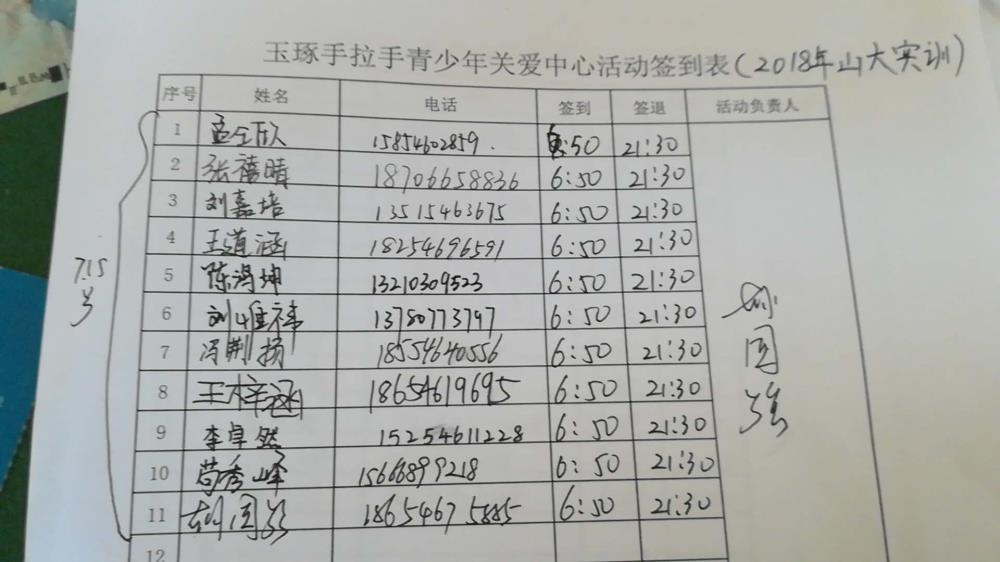 玉琢手拉手青少年关爱中心活动签到表(2018年山大实训)
序号 姓名 电话 签到 签退 活动负责人
1 15854602859. :50 21:30
2 张禧晴 18706658836 6:50 21:30
3 刘嘉培 13515463675 6:50 21:30
4 王道涵 18254696591 6:50 21:30
5 陈鸿坤 13210309523 6:50 21:30
6 刘 13780773797 6:50 21:30
7 冯荆扬 18554640556 6:50 21:30
8 王梓涵 18654619695 6:50 21:30
9 李卓然 15254611228 6:50 21:30
10 苟秀峰 15668899218 6:50 21:30
11 国 18654675885 6:50 21:30
12
7.15
号
国
强